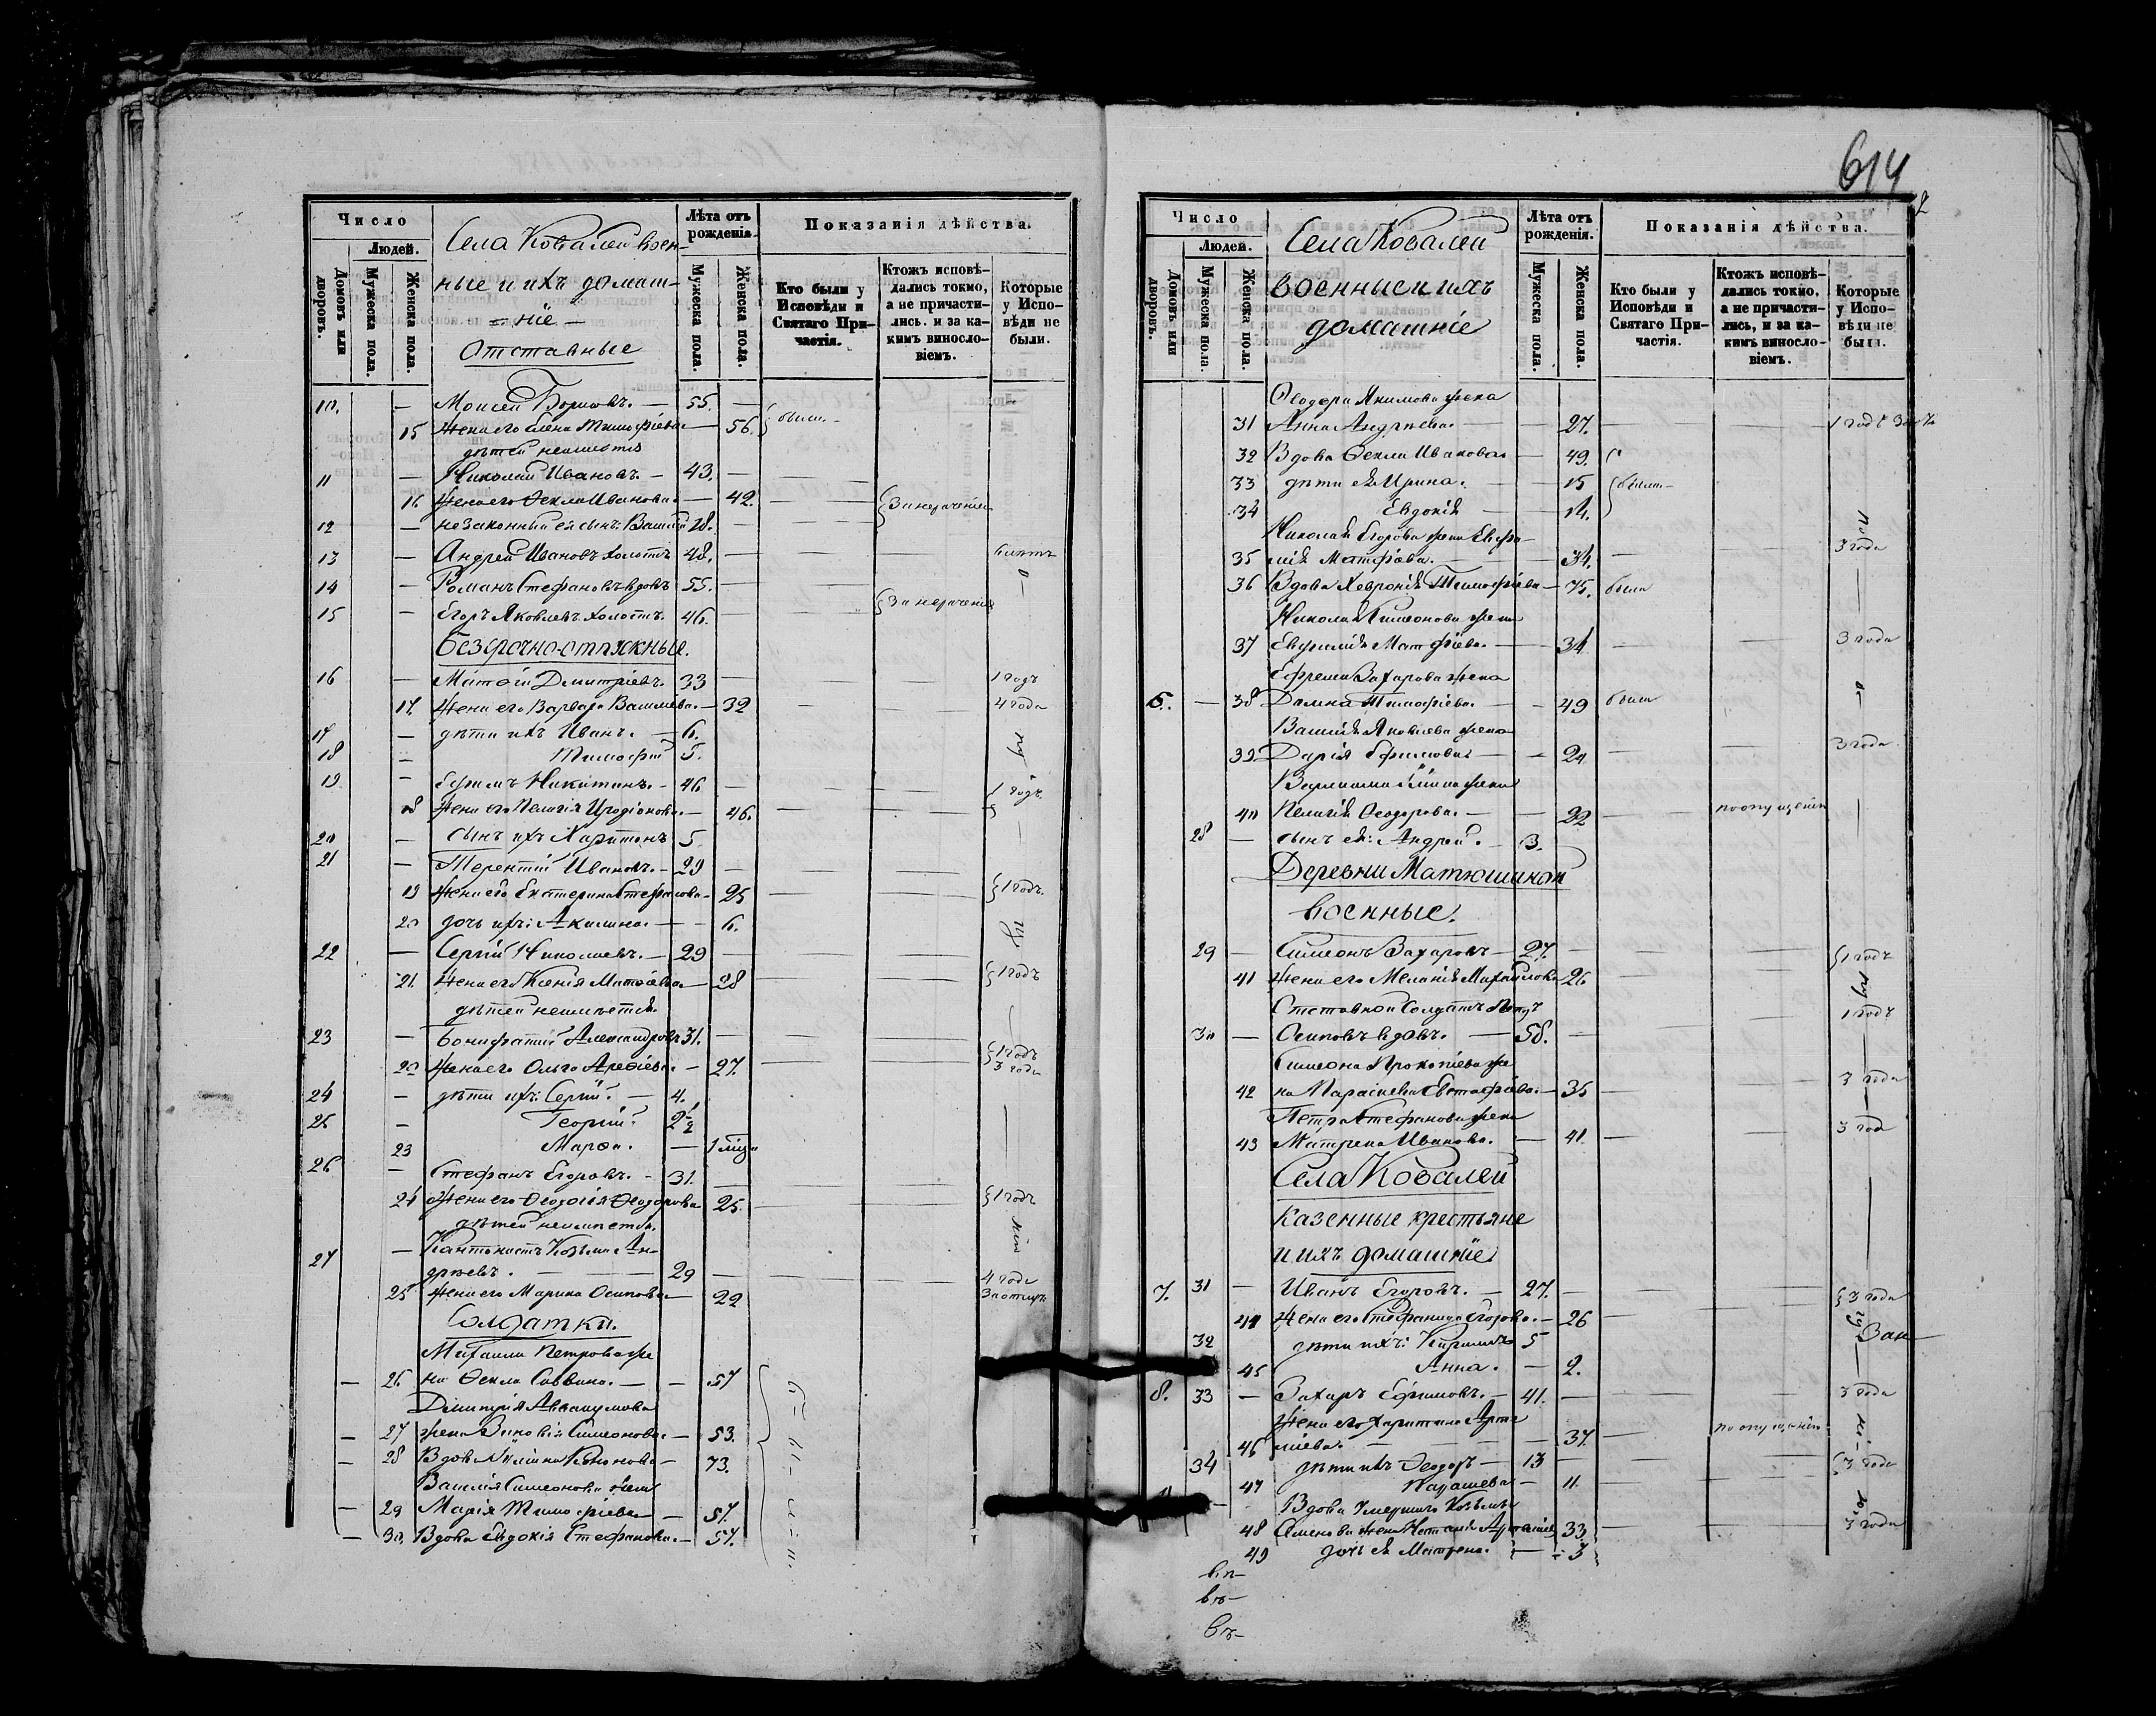 Число
Людей.
Домовъ или дворовъ.
Мужеска пола.
Женска пола.
Села Ковалей воен-
ные и ихъ домаш-
= ніе -
Отставные
Лѣта отъ рожденія.
Мужеска пола.
Женска пола.
Показанія дѣйства.
Кто были у Исповѣди и Святаго При-частія.
Ктожъ исповѣ-дались токмо, а не причасти-лись. и за ка-кимъ виносло-віемъ.
Которые у Испо-вѣди не были.
10. — Моисей — 55. —
15 жена его Елена Тимофіева — 56. были
дѣтей неимѣетъ
11 — Николай Ивановъ. — 43. —
16 жена его Ѳекла Иванова. — 42. За нераченіемъ
12 — незаконный ея сынъ: Василій 18. —
13 — Андрей Ивановъ холостъ 48. —
14 — Романъ Стефановъ вдовъ 55. —
15 — Егоръ Яковлевъ холостъ. 46. За нераченіе
Безсрочно-отпускные.
16 — Матѳій Димитріевъ. 33 — 1 годъ
17. жена его Варвара Василіева. — 32 4 года
17 — дѣти ихъ Иванъ. — 6.
18 — Тимофей 5.
19 — Ефимъ Никитинъ. — 46 1 годъ
18 жена его Пелагія Иродіонова. — 46.
20 — сынъ ихъ Харитонъ 5
21 — Терентій Ивановъ. — 29
19 жена его Екатерина Стефанова — 25 1 годъ.
20 дочь ихъ: Акилина. — 6.
22 — Сергій Николаевъ. — 29
21. жена его Ксенія Матѳіева — 28 1 годъ
дѣтей неимѣется.
23 — Бонифатій Александровъ 31. —
22 жена его Ольга — 27. 1 годъ
3 года
24 — дѣти ихъ: Сергій. — 4.
25 — Георгій. 2 1/2
23 Марѳа. —
26 — Стефанъ Егоровъ. — 31.
24 жена его Ѳеодосія Ѳеодорова 25. 1 годъ
дѣтей неимѣется.
27 — Кантонистъ Козьма Ан-
дреевъ. — 29
25 жена его Марина Осипова — 22 4 года
Солдатки.
Михаила Петрова же
— 26 на Ѳекла Саввина. — 57
Димитрія Аввакумова
— 27 жена Зиновія Симеонова. — 53.
— 28 Вдова Кононова — 73.
Василія Симеонова жена
— 29 Марія Тимофіева — 57.
— 30. Вдова Евдокія Стефанова. — 57.
614
2
Число
Людей.
Домовъ или дворовъ.
Мужеска пола.
Женска пола.
Села Ковалей
военные и ихъ
домашніе
Лѣта отъ рожденія.
Мужеска пола.
Женска пола.
Показанія дѣйства.
Кто были у Исповѣди и Святаго При-частія.
Ктожъ исповѣ-дались токмо, а не причасти-лись, и за ка-кимъ виносло-віемъ.
Которые у Испо-вѣди не были.
Ѳеодора Якимова жена
31 Анна Андреева. — 27. — 1 годъ
32 Вдова Ѳекла Иванова — 49.
33 дѣти ея: Ирина. — 15 были —
34 Евдокія — 14.
Николая Егорова жена Евфи-
35 мія Матфіева. — 34. 3 года
36 Вдова Хевронія Тимофіева — 75. была
Николая Симеонова жена
37 Евфимія Матфіева. — 34 3 года
Ефрема Захарова жена
6. — 38 Домна Тимофіева. — 49 была
Василія Яковлева жена
39 Дарія Ефимова — 24 3 года
жена
40 Пелагія Ѳеодорова. — 22 по опущенію
28 — сынъ ея: Андрей. 3.
Деревни Матюшиной
военные.
29 — Симеонъ Захаровъ — 27. 1 годъ
41 жена его Меланія Михайлова 26
Отставной Солдатъ
30 — Осиповъ вдовъ. — 58. 1 годъ
Симеона Прокопіева же
42 на Параскева Евстафіева. — 35 3 года
Петра Стефанова жена
43 Матрена Иванова. — 41. 3 год
Села Ковалей
казенные крестьяне
и ихъ домашніе
7. 31 — Иванъ Егоровъ. — 27. — 3 года
44 жена его Стефанида Егорова. — 26
32 дѣти ихъ: 5
45 Анна. — 2.
8. 33 — Захаръ Ефимовъ. — 41. — 3 года
жена его Харитина Арте
46 міева. — 37. по опущенію
34 дѣти ихъ Ѳеодоръ — 13 3 года
47 — 11.
Вдова Умершаго Козьмы
48 Семенова жена Наталія 33. 3 года
49 дочь ея Матрена. — 3
въ-
въ-